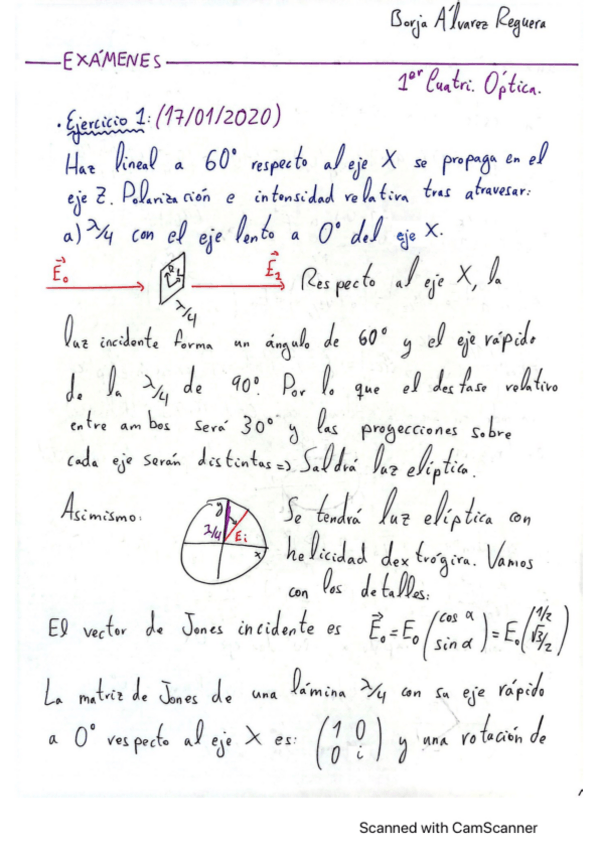 Borja Álvarez Reguera
EXÁMENES
1er Cuatri. Óptica.
• Ejercicio 1: (17/01/2020)
Haz lineal a 60° respecto al eje X se propaga en el
eje Z. Polarización e intensidad relativa tras atravesar:
a) λ/4 con el eje lento a 0° del eje X.
E⃗₀ R L E⃗₁ Respecto al eje X, la
λ/4
luz incidente forma un ángulo de 60° y el eje rápido
de la λ/4 de 90°. Por lo que el desfase relativo
entre ambos será 30° y las proyecciones sobre
cada eje serán distintas => Saldrá luz elíptica.
Asimismo: y λ/4 Ei x Se tendrá luz elíptica con
helicidad dextrógira. Vamos
con los detalles:
El vector de Jones incidente es E⃗₀ = E₀ (cos α sin α) = E₀ (1/2 √3/2)
La matriz de Jones de una lámina λ/4 con su eje rápido
a 0° respecto al eje X es: (1 0 0 i) y una rotación de
Scanned with CamScanner